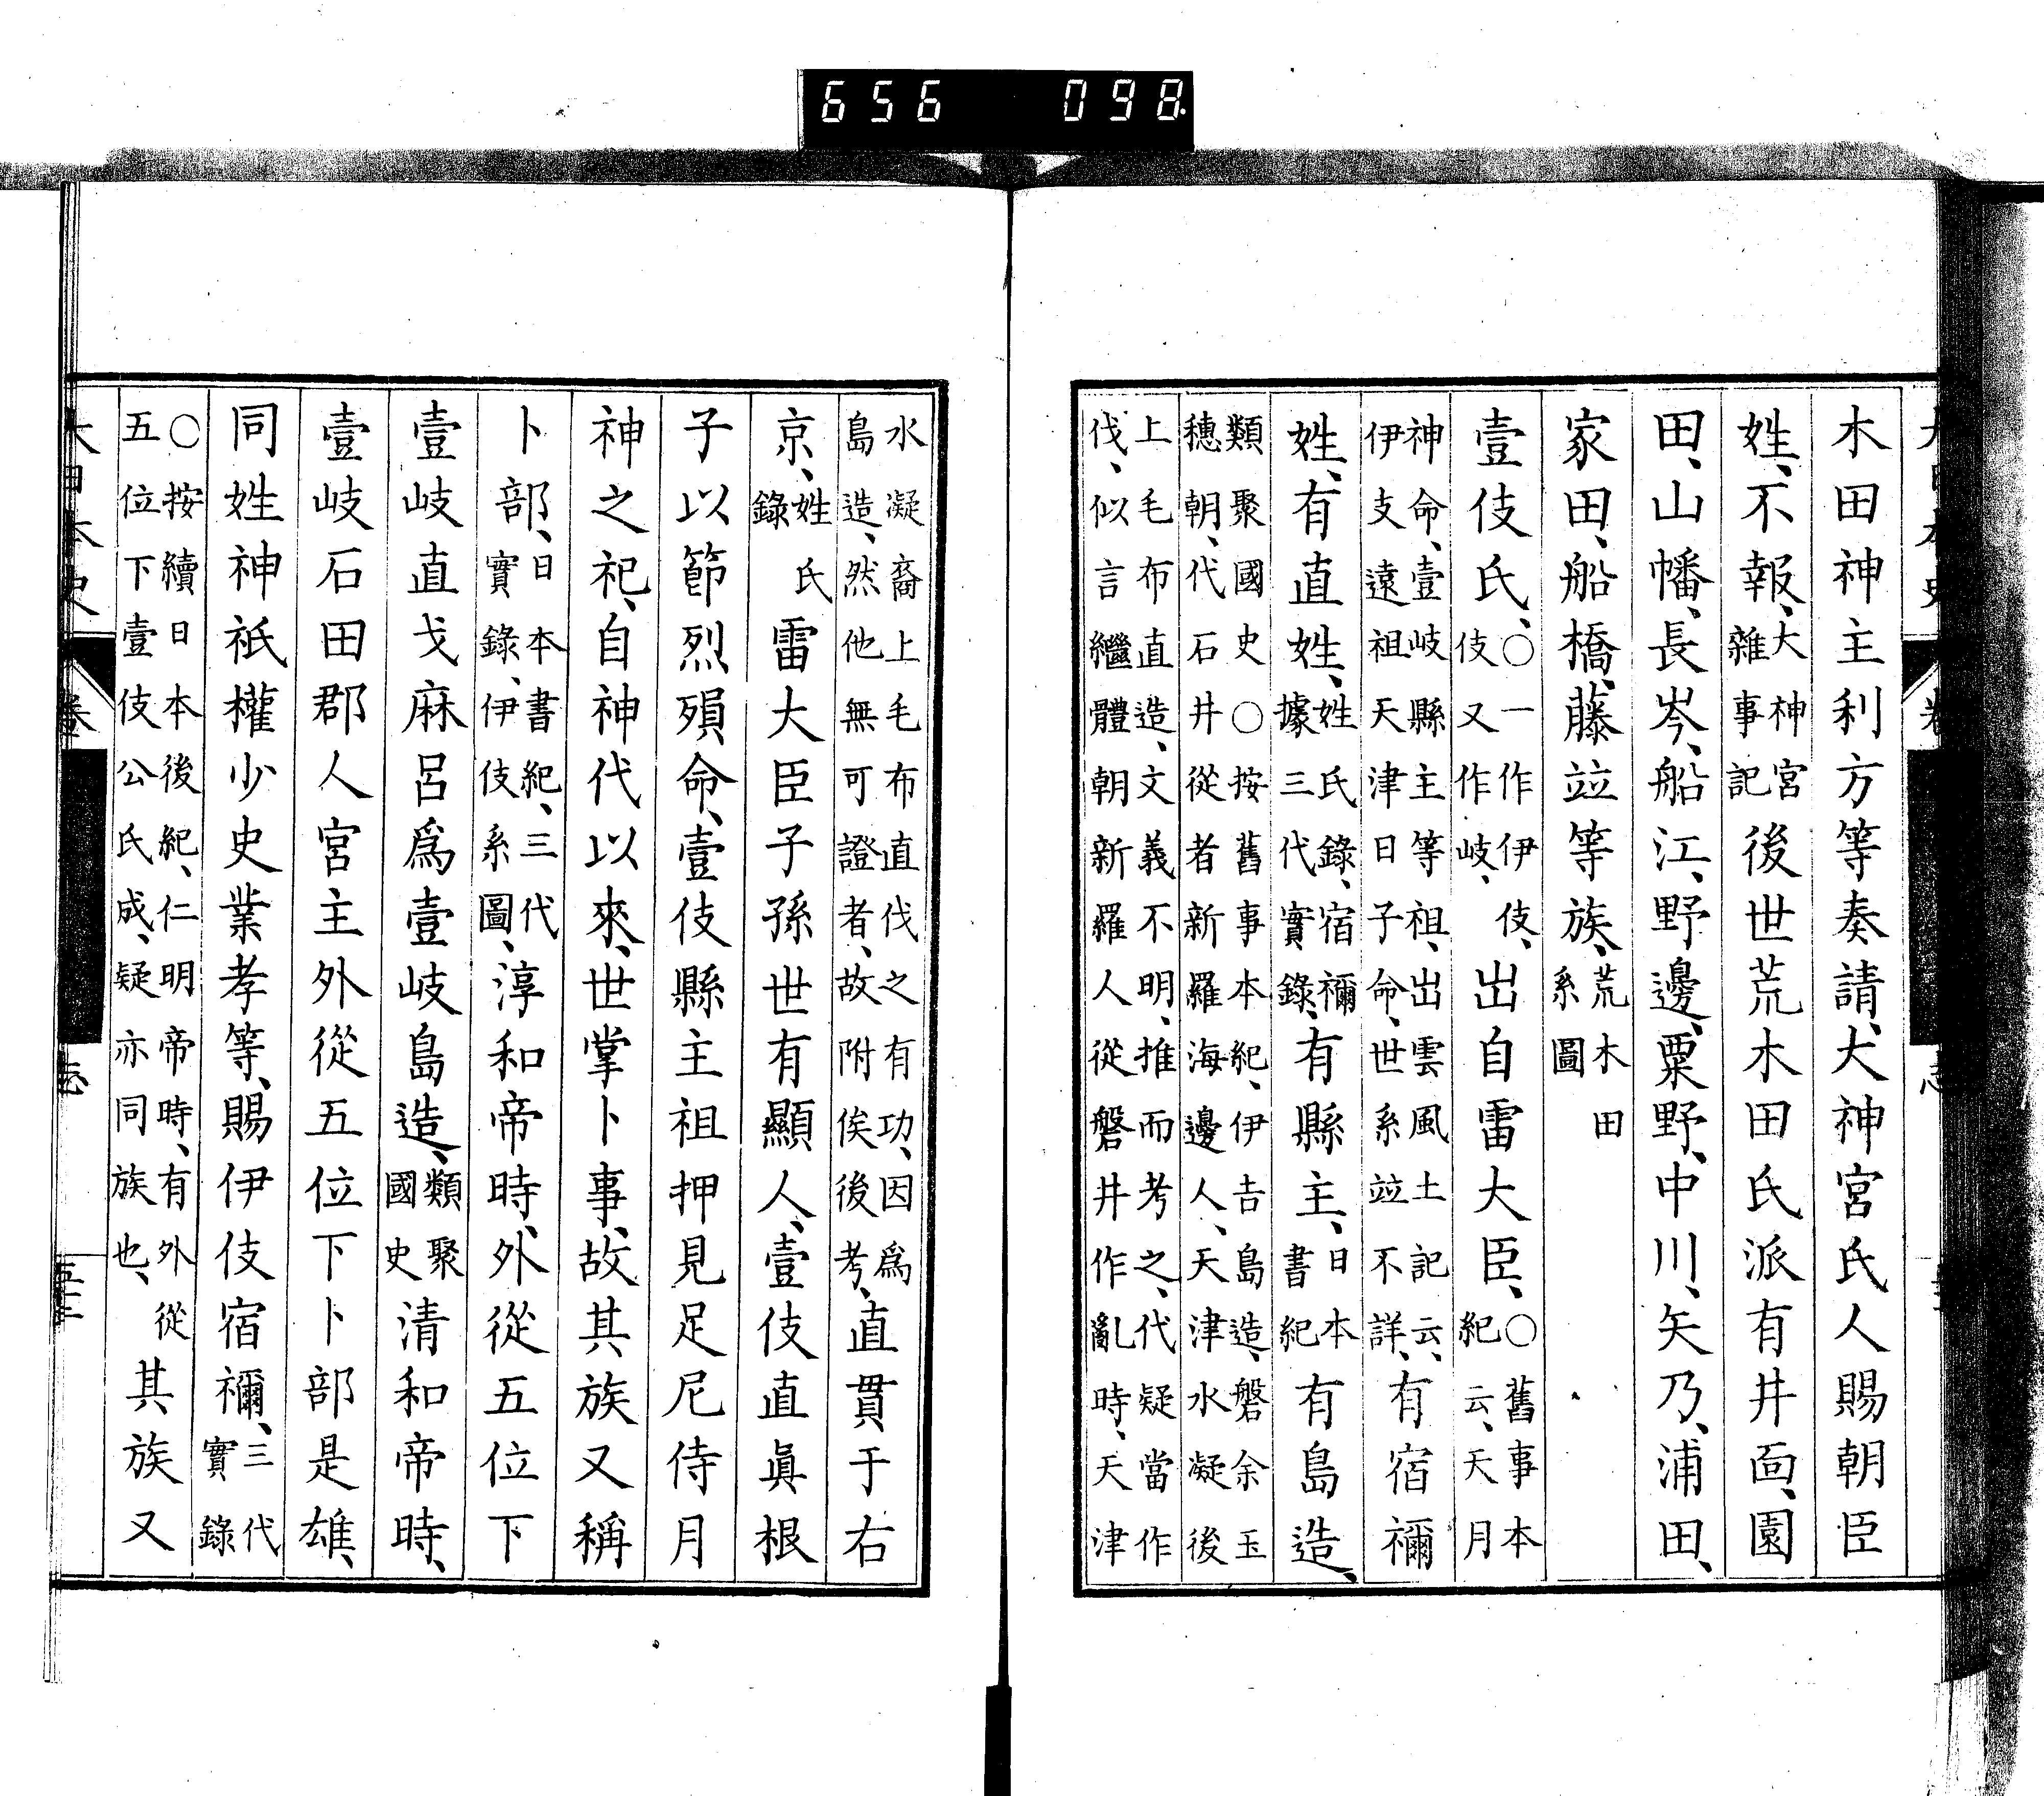 656 098
木田神主利方等奏請、大神宮氏人賜朝臣
姓、不報、大神宮雜事記後世荒木田氏派有井面、園
田、山幡、長岑、船江、野邊、粟野、中川、矢乃、浦田、
家田、船橋、藤竝等族、荒木田系圖
壹伎氏、○一作伊伎、伎又作岐、出自雷大臣、○舊事本紀云、天月
神命、壹岐縣主等祖、出雲風土記云、伊支遠祖天津日子命、世系竝不詳、有宿禰
姓、有直姓、姓氏錄、宿禰據三代實錄、有縣主、日本書紀有島造、
類聚國史○按舊事本紀、伊吉島造、磐余玉穗朝、代石井從者新羅海邊人、天津水凝後
上毛布直造、文義不明、推而考之、代疑當作伐、似言繼體朝新羅人從磐井作亂時、天津
水凝裔上毛布直伐之有功、因爲島造、然他無可證者、故附俟後考、直貫于右
京、姓氏錄雷大臣子孫世有顯人、壹伎直眞根
子以節烈殞命、壹伎縣主祖押見足尼侍月
神之祀、自神代以來、世掌卜事、故其族又稱
卜部、日本書紀、三代實錄、伊伎系圖、淳和帝時、外從五位下
壹岐直戈麻呂爲壹岐島造、類聚國史清和帝時、
壹岐石田郡人宮主外從五位下卜部是雄、
同姓神祇權少史業孝等、賜伊伎宿禰、三代實錄
○按續日本後紀、仁明帝時、有外從五位下壹伎公氏成、疑亦同族也、其族又
大日本史 卷 志 五十三